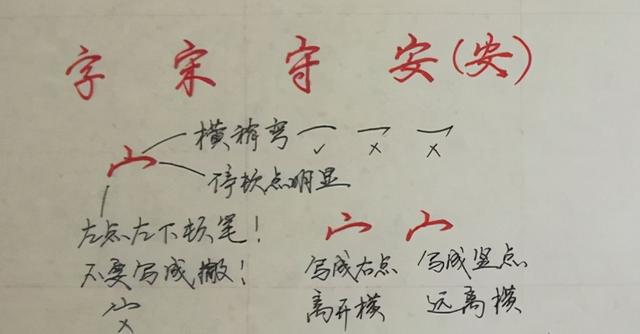 字 宋 守 安(安)
横稍弯 ✓ × ×
宀
停顿点明显
左点左下顿笔!
不要写成撇!
×
写成右点
离开横
写成竖点
远离横